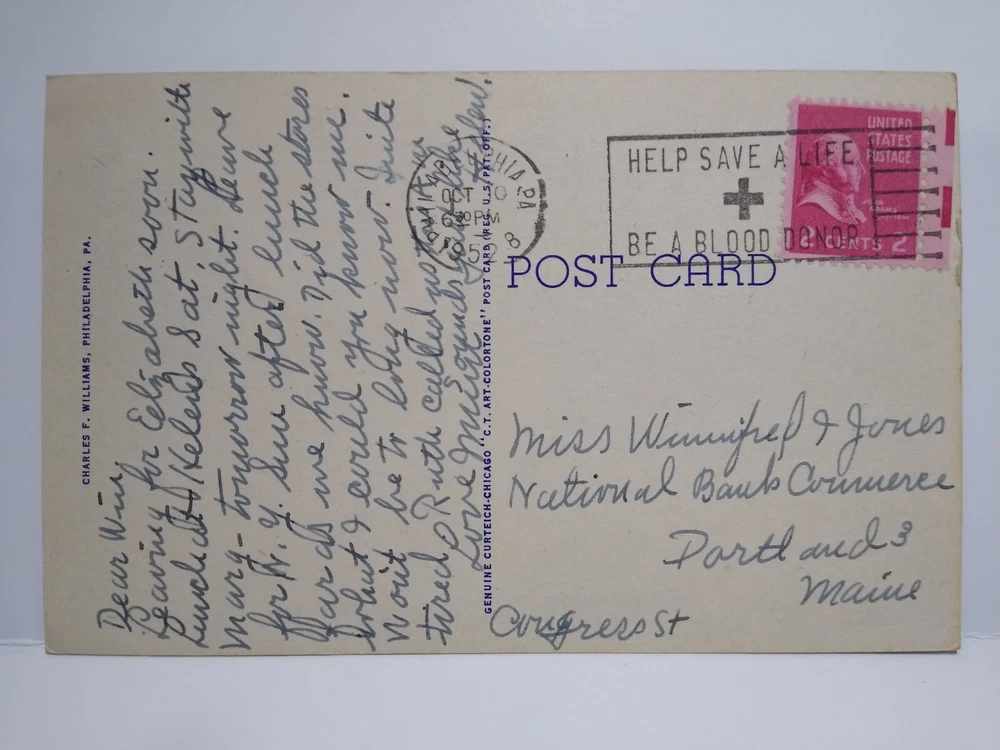 CHARLES F. WILLIAMS, PHILADELPHIA, PA.
Dear Win,
Leaving for Elizabeth soon.
Lunch at Helens Sat, Stay with
Mary - tomorrow night. Leave
for N. Y. Sun after lunch
far as we know. Did the stores
what I could you know me.
Won't be to long now. Quite
tired Ruth called us
Love
GENUINE CURTEICH-CHICAGO "C.T. ART-COLORTONE" POST CARD (REG. U.S. PAT. OFF.)
PHILADELPHIA PA
OCT 10
6 PM
1952
8
HELP SAVE A LIFE
BE A BLOOD DONOR
UNITED
STATES
POSTAGE
JOHN
ADAMS
2 CENTS 2
POST CARD
Miss Winnifred J Jones
National Bank Commerce
Portland 3
Maine
Congress St